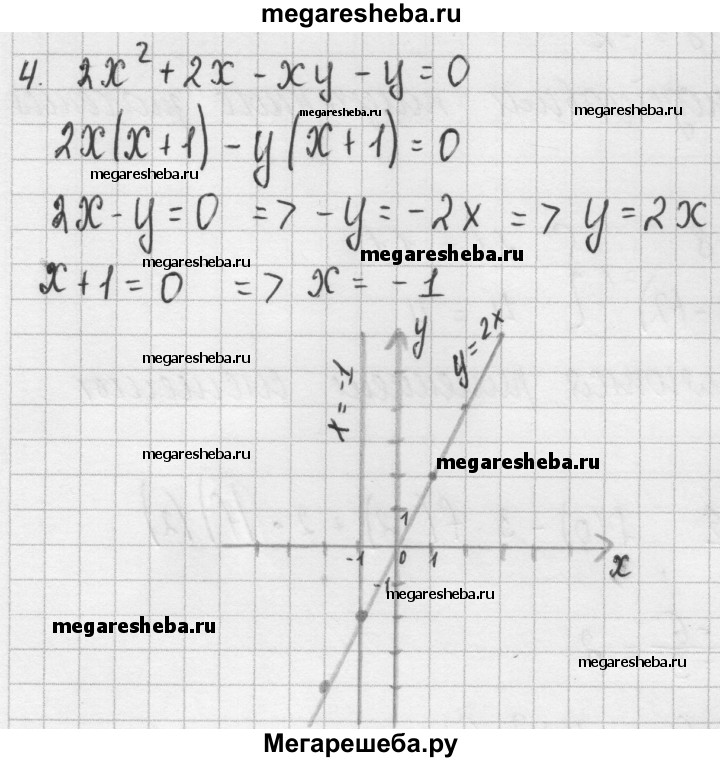 megaresheba.ru
4. 2x² + 2x - xy - y = 0
megaresheba.ru
megaresheba.ru
2x(x+1) - y(x+1) = 0
megaresheba.ru
2x - y = 0 => -y = -2x => y = 2x
megaresheba.ru
megaresheba.ru
x + 1 = 0 => x = -1
y
y = 2x
x = -1
megaresheba.ru
megaresheba.ru
megaresheba.ru
1
-1 0 1 x
-1
megaresheba.ru
megaresheba.ru
megaresheba.ru
Мегарешеба.ру